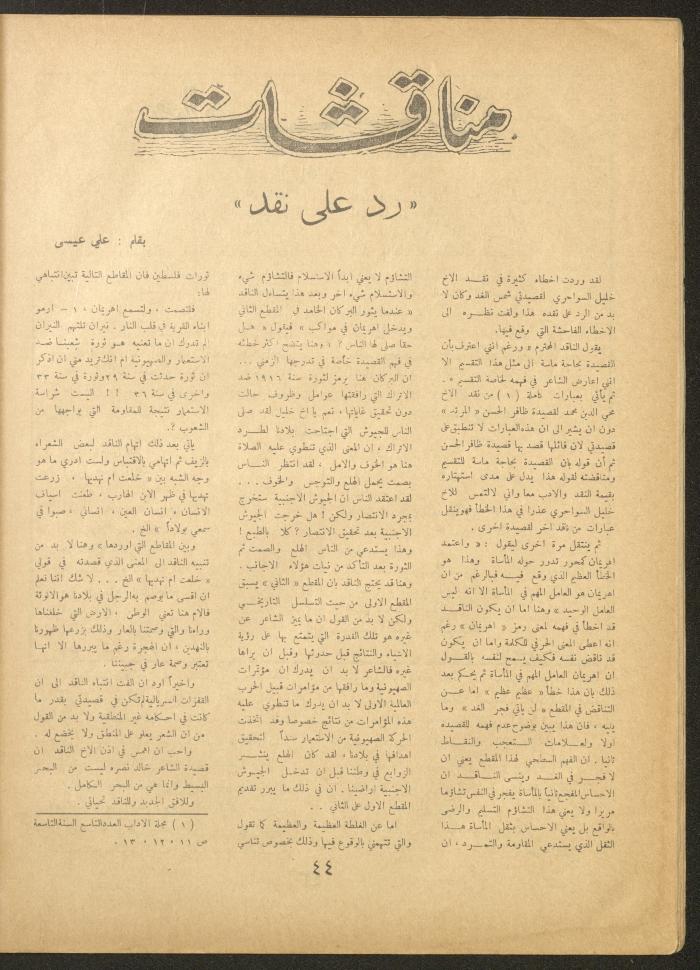 مناقشات
« رد على نقد »
بقلم : علي عيسى
لقد وردت اخطاء كثيرة في نقد الاخ
خليل السواحري لقصيدتي شمس الغد وكان لا
بد من الرد على نقده هذا ولفت نظره الى
الاخطاء الفاحشة التي وقع فيها.
يقول الناقد المحترم « ورغم انني اعترف بأن
القصيدة بحاجة ماسة الى مثل هذا التقسيم الا
انني اعارض الشاعر في فهمه لخاصة التقسيم » .
ثم يأتي بعبارات كاملة ( ١ ) من نقد الاخ
محي الدين محمد لقصيدة ظافر الحسن « المرتد »
دون ان يشير الى ان هذه العبارات لا تنطبق على
قصيدتي لان قائلها قصد بها قصيدة ظافر الحسن
ثم أن قوله بان القصيدة بحاجة ماسة للتقسيم
ومناقضته لقوله هذا يدل على مدى استهتاره
بقيمة النقد والادب معا واني لالتمس للاخ
خليل السواحري عذرا في هذا الخطأ فهو ينقل
عبارات من نقد اخر لقصيدة اخرى .
ثم ينتقل مرة اخرى ليقول : « واعتمد
اهريمان كمحور تدور حوله المأساة وهذا هو
الخطأ العظيم الذي وقع فيه فبالرغم من ان
اهريمان هو العامل المهم في المأساة الا انه ليس
العامل الوحيد » وهنا اما ان يكون الناقد
قد اخطأ في فهمه لمعنى رمز « اهريمان » رغم
انه اعطى المعنى الحرفي للكلمة واما ان يكون
قد ناقض نفسه فكيف يسمح لنفسه بالقول
ان اهريمان العامل المهم في المأساة ثم يحكم بعد
ذلك بان هذا خطأ « عظيم عظيم » اما عن
التناقض في المقطع « لن يأتي فجر الغد » وما
يليه ، فان هذا يبين بوضوح عدم فهمه للقصيده
اولا ولعلامات التعجب والنقاط
ثانيا . ان الفهم السطحي لهذا المقطع يعني ان
لا فجر في الغد وينسى الناقد ان
الاحساس المفجع ثانيا بالمأساة يفجر في النفس تشاؤما
مريرا ولا يعني هذا التشاؤم التسليم والرضى
بالواقع بل يعني الاحساس بثقل المأساة هذا
الثقل الذي يستدعي المقاومة والتمرد ، ان
التشاؤم لا يعني ابدأ الاستسلام فالتشاؤم شيء
والاستسلام شيء اخر وبعد هذا يتساءل الناقد
« عندما يثور البركان الخامد في المقطع الثاني
ويدخل اهريمان في مواكب » فيقول « هل
حقا صلى لها الناس ? » وهنا يتضح اكثر خطئه
في فهم القصيدة خاصة في تدرجها الزمني ...
ان البركان هنا يرمز لثورة سنة ١٩١٦ ضد
الاتراك التي رافقتها عوامل وظروف حالت
دون تحقيق غاياتها ، نعم يا اخ خليل لقد صلى
الناس للجيوش التي اجتاحت بلادنا لطرد
الاتراك ، ان المعنى الذي تنطوي عليه الصلاة
هنا هو الخوف والامل ، لقد انتظر الناس
بصمت يحمل الهلع والتوجس والخوف ...
لقد اعتقد الناس ان الجيوش الاجنبية ستخرج
بمجرد الانتصار ولكن ! هل خرجت الجيوش
الاجنبية بعد تحقيق الانتصار ? كلا بالطبع !
وهذا يستدعي من الناس الهلع والصمت ثم
الثورة بعد التأكد من نيات هؤلاء الاجانب .
وهنا قد يحتج الناقد بان المقطع « الثاني » يسبق
المقطع الاولى من حيث التسلسل التاريخي
ولكن لا بد من القول ان ما يميز الشاعر عن
غيره هو تلك القدرة التي يتمتع بها على رؤية
الاشياء والنتائج قبل حدوثها وقبل ان يراها
غيره فالشاعر لا بد ان يدرك ان مؤتمرات
الصهيونية وما رافقها من مؤامرات قبيل الحرب
العالمية الاولى لا بد ان يدرك ما تنطوي عليه
هذه المؤامرات من نتائج خصوصا وقد اتخذت
الحركة الصهيونية من الاستعمار سندأ لتحقيق
اهدافها في بلادنا ، لقد كان الهلع ينشر
الزوابع في وطننا قبل ان تدخل الجيوش
الاجنبية اراضينا . ان في ذلك ما يبرر تقديم
المقطع الاول على الثاني . .
اما عن الغلطة العظيمة والعظيمة كما تقول
والتي تتهمني بالوقوع فيها وذلك بخصوص تناسي
ثورات فلسطين فان المقاطع التالية تبين انتباهي
لها :
فلنصمت ، ولتسمع اهريمان ، ١ – ارمو
ابناء القرية في قلب النار . نيران تلتهم النيران
الم تدرك ان ما تعنيه هو ثورة شعبنا ضد
الاستعمار والصهيونية ام انك تريد مني ان اذكر
ان ثورة حدثت في سنة ٢٩ وثورة في سنة ٣٣
واخرى في سنة ٣٦ !! اليست شراسة
الاستعمار نتيجة للمقاومة التي يواجهها من
الشعوب ?.
يأتي بعد ذلك اتهام الناقد لبعض الشعراء
بالزيف ثم اتهامي بالاقتباس ولست ادري ما هو
وجه الشبه بين « خلعت ام نهديها ، زرعت
نهديها في ظهر الابن الهارب ، طعنت اسياف
الانسان ، انسان العين ، انساني ، صبوا في
سمعي بولادأ » الخ .
وبين المقاطع التي اوردها » وهنا لا بد من
تنبيه الناقد الى المعنى الذي قصدته في قولي
« خلعت ام نهديها » الخ ... لا شك اننا نعلم
ان اقسى ما يوصم به الرجل في بلادنا هو الانوثة
فالام هنا تعني الوطن ، الارض التي خلفناها
وراءنا والتي وصمتنا بالعار وذلك بزرعها ظهورنا
بالنهدين ، ان الهجرة رغم ما يبررها الا انها
تعتبر وصمة عار في جبيننا .
واخيرأ اود ان الفت انتباه الناقد الى ان
القفزات السريالية لم تكن في قصيدتي بقدر ما
كانت في احكامه غير المنطقية ولا بد من القول
من ان الشعر يعلو على المنطق ولا يخضع له .
واحب ان اهمس في اذن الاخ الناقد ان
قصيدة الشاعر خالد نصره ليست من البحر
البسيط وانما هي من البحر الكامل .
وللافق الجديد وللناقد تحياتي .
( ١ ) مجلة الاداب العدد التاسع السنة التاسعة
ص ١١ ، ١٢ ، ١٣ .
٤٤